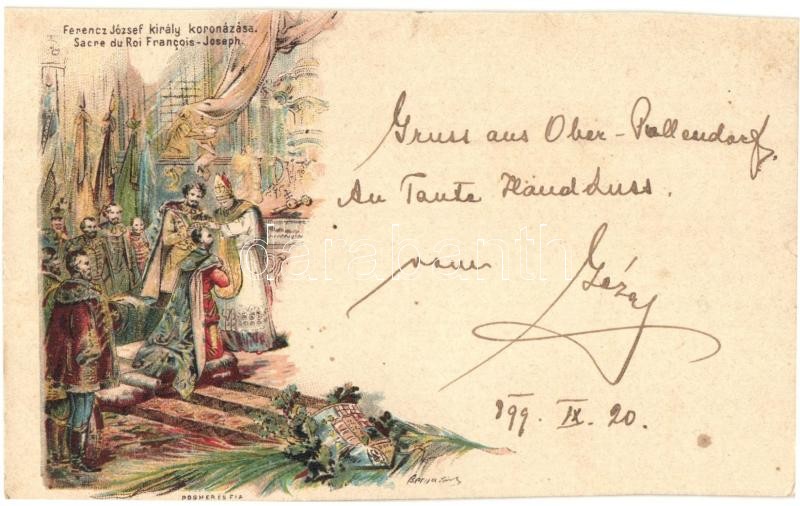 Ferencz József király koronázása.
Sacre du Roi François-Joseph.
Gruss aus Ober-Pullendorf,
An Tante Handkuss.
vom Géza
899. IX. 20.
POSNER ÉS FIA
darabanth